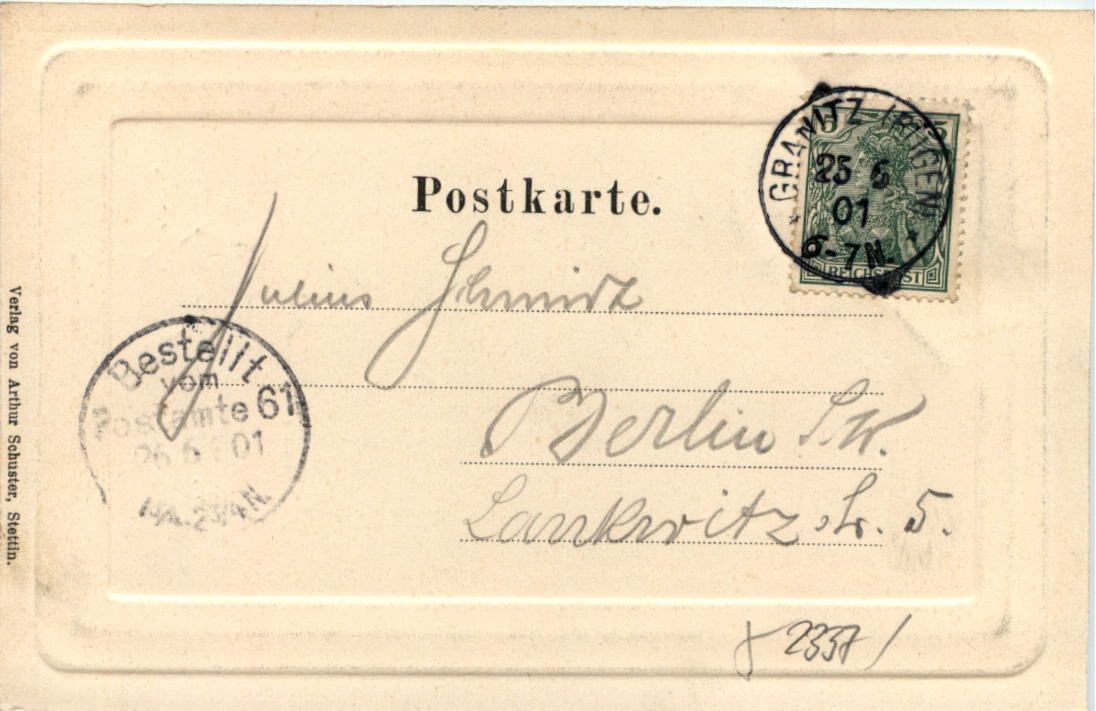 Postkarte.
5 5
GRANITZ (RÜGEN)
25 6
01
6-7N.
REICHSPOST
Julius Schmidt
Berlin SW.
Lankwitz str. 5.
Bestellt
vom
Postamte 61
26 6 01
2¾N.
Verlag von Arthur Schuster, Stettin.
2337